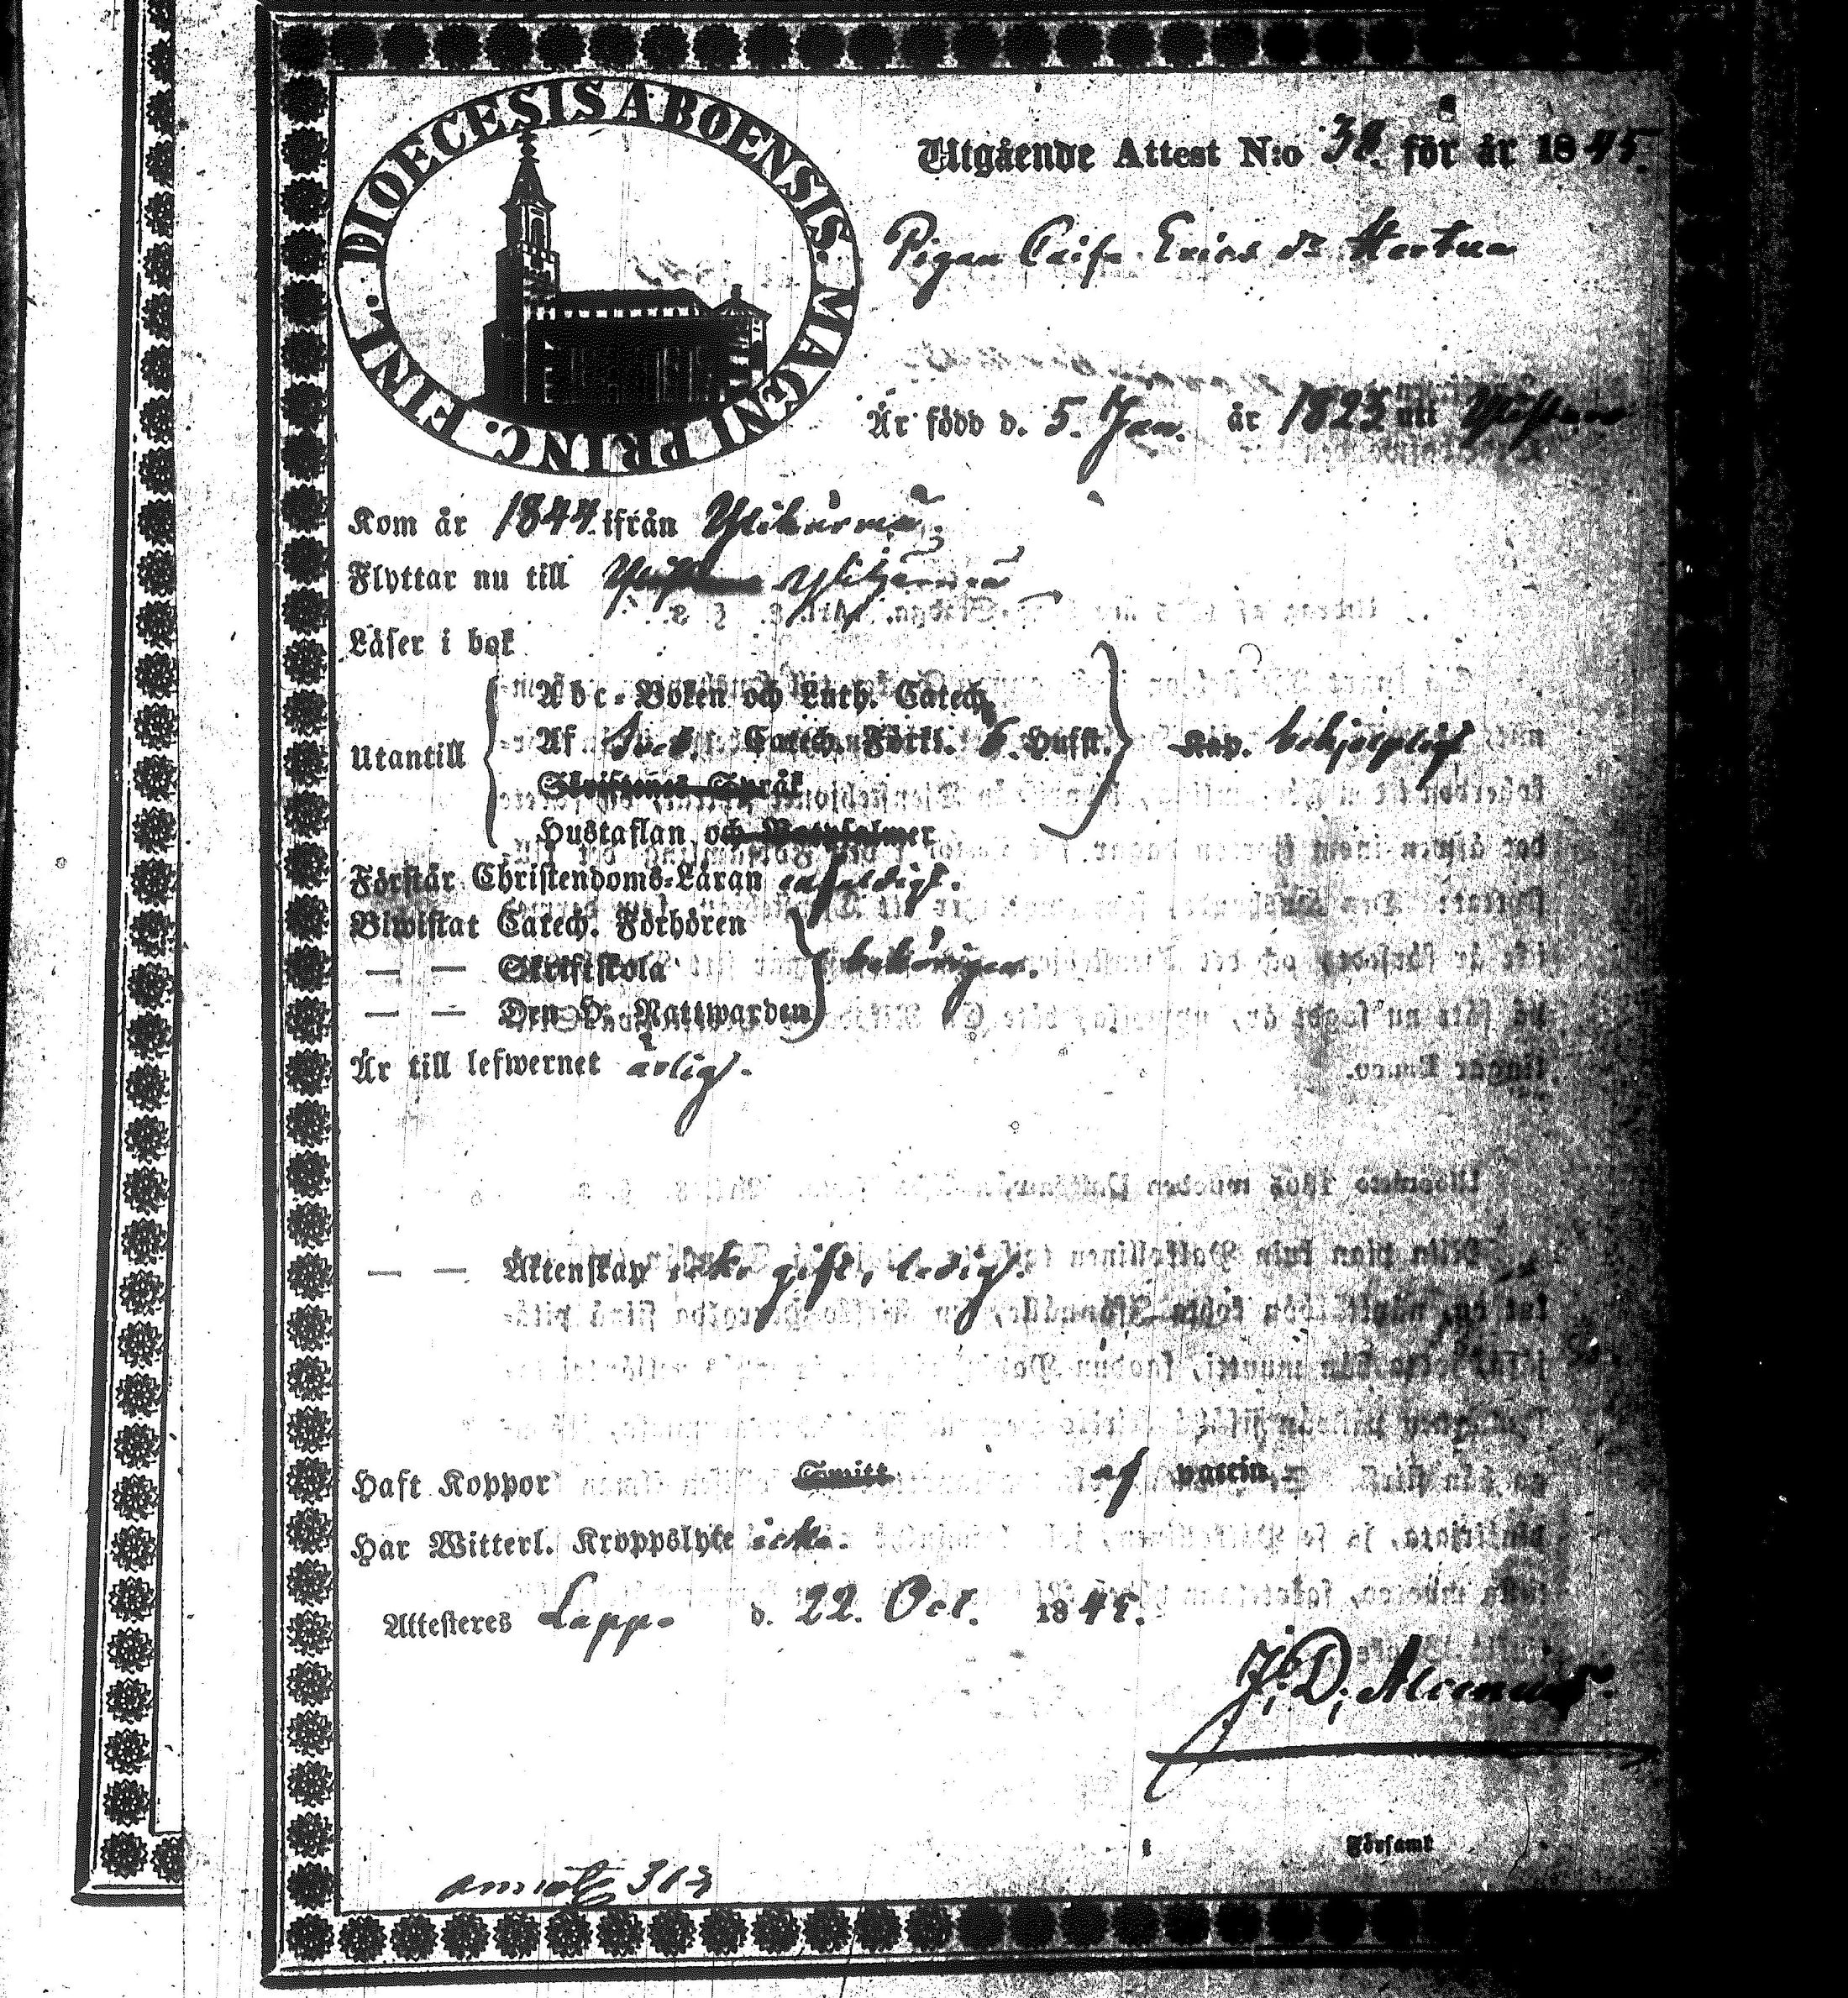 DIOECESIS ABOENSIS. MAGNI PRINC. FINL.
Utgående Attest N:o 38. för år 1845.
Pigan Caisa Erics dr Hertua
Är född d. 5. Jan. år 1823 uti
Kom år 1844 ifrån Ylikärmä.
Flyttar nu till Ylikärmä
Läser i bok
Utantill
Abc-Boken och Luth. Catech.
Af Sveb. Catech. Förkl. 6. Hufst. Kap. behjelpligt
Skriftenes Språk
Hustaflan och Botpsalmer
Förstår Christendoms-Läran enfaldigt.
Biwistat Catech. Förhören
— — Skriftskola behörigen.
— — Den H. Nattwarden
Är till lefwernet ärligt.
— — Äktenskap icke gift, ledig.
Haft Koppor Smitt af vaccin.
Har Witterl. Kroppslyte icke.
Attesteres Lappo d. 22. Oct. 1845.
J. D. Alcenius.
i Församl
annot 313